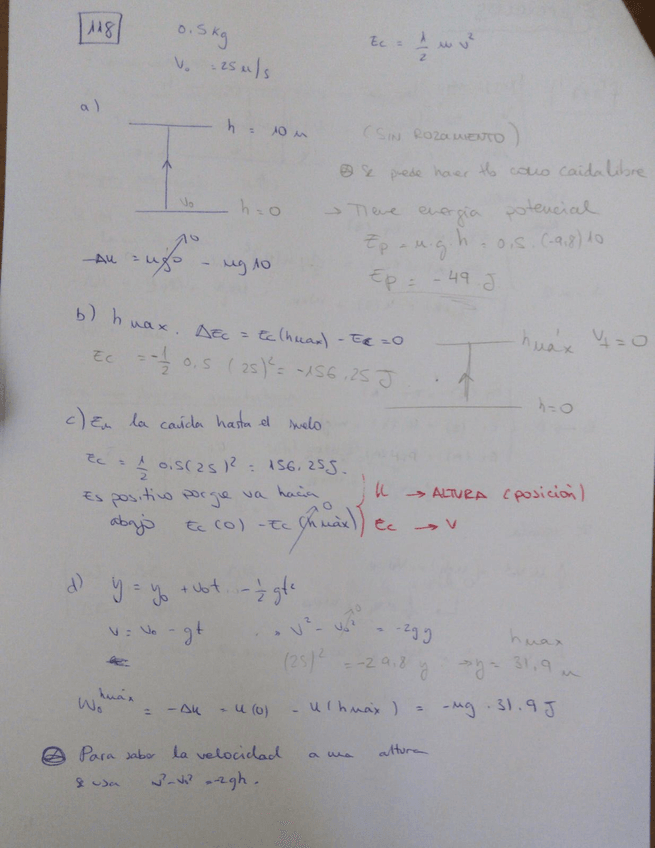 118 0.5 kg Ec = 1/2 m v²
V₀ = 25 m/s
a)
h = 10 m (SIN ROZAMIENTO)
⊗ Se puede hacer tb como caída libre
V₀ h = 0 → Tiene energía potencial
Ep = m·g h = 0.5 · (-9.8) 10
-Δu = mg0 → 0 - mg 10
Ep = -49 J
b) h max. ΔEc = Ec (hmax) - Ec = 0 hmáx V_f = 0
Ec = -1/2 0.5 (25)² = -156.25 J
h = 0
c) En la caída hasta el suelo
Ec = 1/2 0.5 (25)² = 156.25 J.
Es positivo porque va hacia
abajo Ec (0) - Ec (hmáx) → 0
U → ALTURA (posición)
Ec → V
d) y = y₀ + v₀t - 1/2 gt²
v = v₀ - gt v² - v₀² = -2gy
hmax
(25)² = -2 9.8 y → y = 31.9 m
W₀^hmáx = -Δu = u(0) - u(hmáx) = -mg · 31.9 J
⊗ Para saber la velocidad a una altura
se usa v² - v₀² = -2gh.